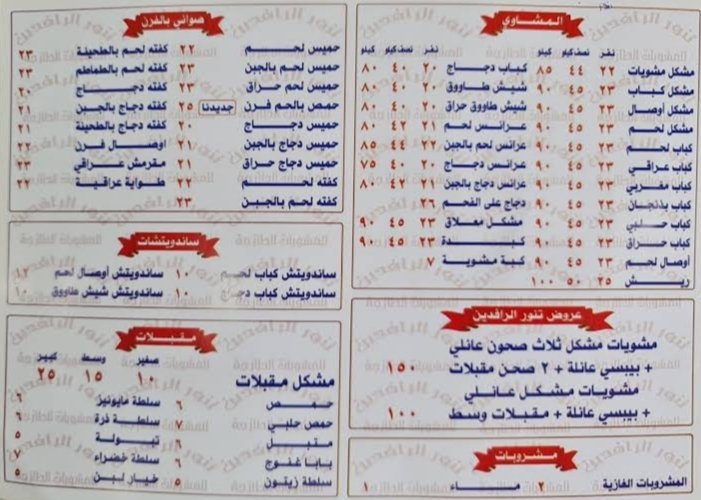 المشاوي
نفر نصف كيلو كيلو
مشكل مشويات ٢٢ ٤٤ ٨٥
مشكل كباب ٢٣ ٤٥ ٩٠
مشكل أوصال ٢٣ ٤٥ ٩٠
مشكل لحم ٢٣ ٤٥ ٩٠
كباب لحم ٢٣ ٤٥ ٩٠
كباب عراقي ٢٣ ٤٥ ٩٠
كباب مغربي ٢٣ ٤٥ ٩٠
كباب بذنجان ٢٣ ٤٥ ٩٠
كباب حلبي ٢٣ ٤٥ ٩٠
كباب حراق ٢٣ ٤٥ ٩٠
أوصال لحم ٢٣ ٤٥ ٩٠
ريش ٢٥ ٥٠ ١٠٠
نفر نصف كيلو كيلو
كباب دجاج ٢٠ ٤٠ ٨٠
شيش طاووق ٢٠ ٤٠ ٨٠
شيش طاووق حراق ٢٠ ٤٠ ٨٠
عرائس لحم ٢١ ٤٢ ٨٠
عرائس لحم بالجبن ٢٢ ٤٤ ٨٥
عرائس دجاج ٢٠ ٤٠ ٧٥
عرائس دجاج بالجبن ٢١ ٤٢ ٨٠
دجاج على الفحم ٢٦
مشكل معلاق ٢٣ ٤٥ ٩٠
كبدة ٢٣ ٤٥ ٩٠
كبة مشوية ٧
عروض تنور الرافدين
مشويات مشكل ثلاث صحون عائلي
+ بيبسي عائلة + ٢ صحن مقبلات ١٥٠
مشويات مشكل عائلي
+ بيبسي عائلة + مقبلات وسط ١٠٠
مشروبات
المشروبات الغازية ٢ ماء ١
صواني بالفرن
حميس لحم ٢٢
حميس لحم بالجبن ٢٣
حميس لحم حراق ٢٣
حمص بالحم فرن جديدنا ٢٥
حميس دجاج ٢٠
حميس دجاج بالجبن ٢١
حميس دجاج حراق ٢١
كفته لحم ٢٢
كفته لحم بالجبن ٢٣
كفته لحم بالطحينة ٢٣
كفته لحم بالطماطم ٢٣
كفته دجاج ٢٠
كفته دجاج بالجبن ٢١
كفته دجاج بالطحينة ٢١
أوصال فرن ٢٢
مقرمش عراقي ٢٣
طواية عراقية ٢٢
ساندويتشات
ساندويتش كباب لحم ١٠ ساندويتش أوصال لحم
ساندويتش كباب دجاج ١٠ ساندويتش شيش طاووق
مقبلات
صغير وسط كبير
مشكل مقبلات ١٠ ١٥ ٢٥
حمص ٦ سلطة مايونيز ٦
حمص حلبي ٧ سلطة ذرة ٦
متبل ٦ تبولة ٥
بابا غنوج ٦ سلطة خضراء ٥
سلطة زيتون ٥ خيار لبن ٥